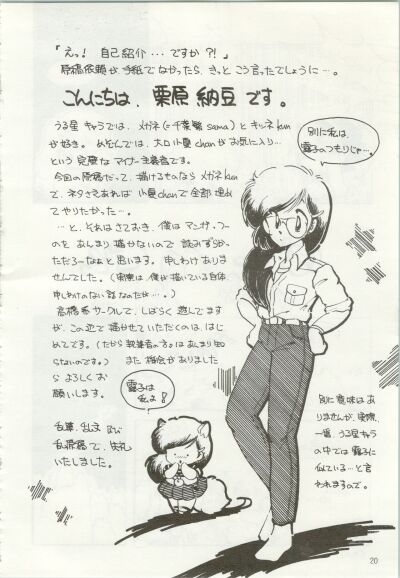 「えっ! 自己紹介…ですか?!」
原稿依頼が手紙でなかったら、きっとこう言ってたでしょうに…。
こんにちは、栗原納豆です。
うる星キャラでは、メガネ(=千葉繁sama)とキツネkun
が好き。めぞんでは、
chanがお気に入り…
という完璧なマイナー主義者です。
今回の原稿だって、描けるものならメガネkun
で、ネタさえあれば
chanで全部埋め
てやりたかった…。
…と、それはさておき、僕はマンガっつー
のをあんまり描かないので読みずらかっ
ただろーなぁと思います。申しわけありま
せんでした。(実際は、僕が描いている自体
申しわけのない話なのだが…。)
高橋系サークルで、しばらく遊んでます
が、この辺で描かせていただくのは、はじ
めてです。(だから執筆者の方はあんまり知
らないのです。)また機会がありました
らよろしくお
願いします。
乱筆、乱文 及び
乱原稿で、失礼
いたしました。
別に私は、
霧子のつもりじゃ…。
霧子は
私よ!
別に意味はあ
りませんが、実際、
一番、うる星キャラ
の中では霧子に
似ている…と言
われますので。
20